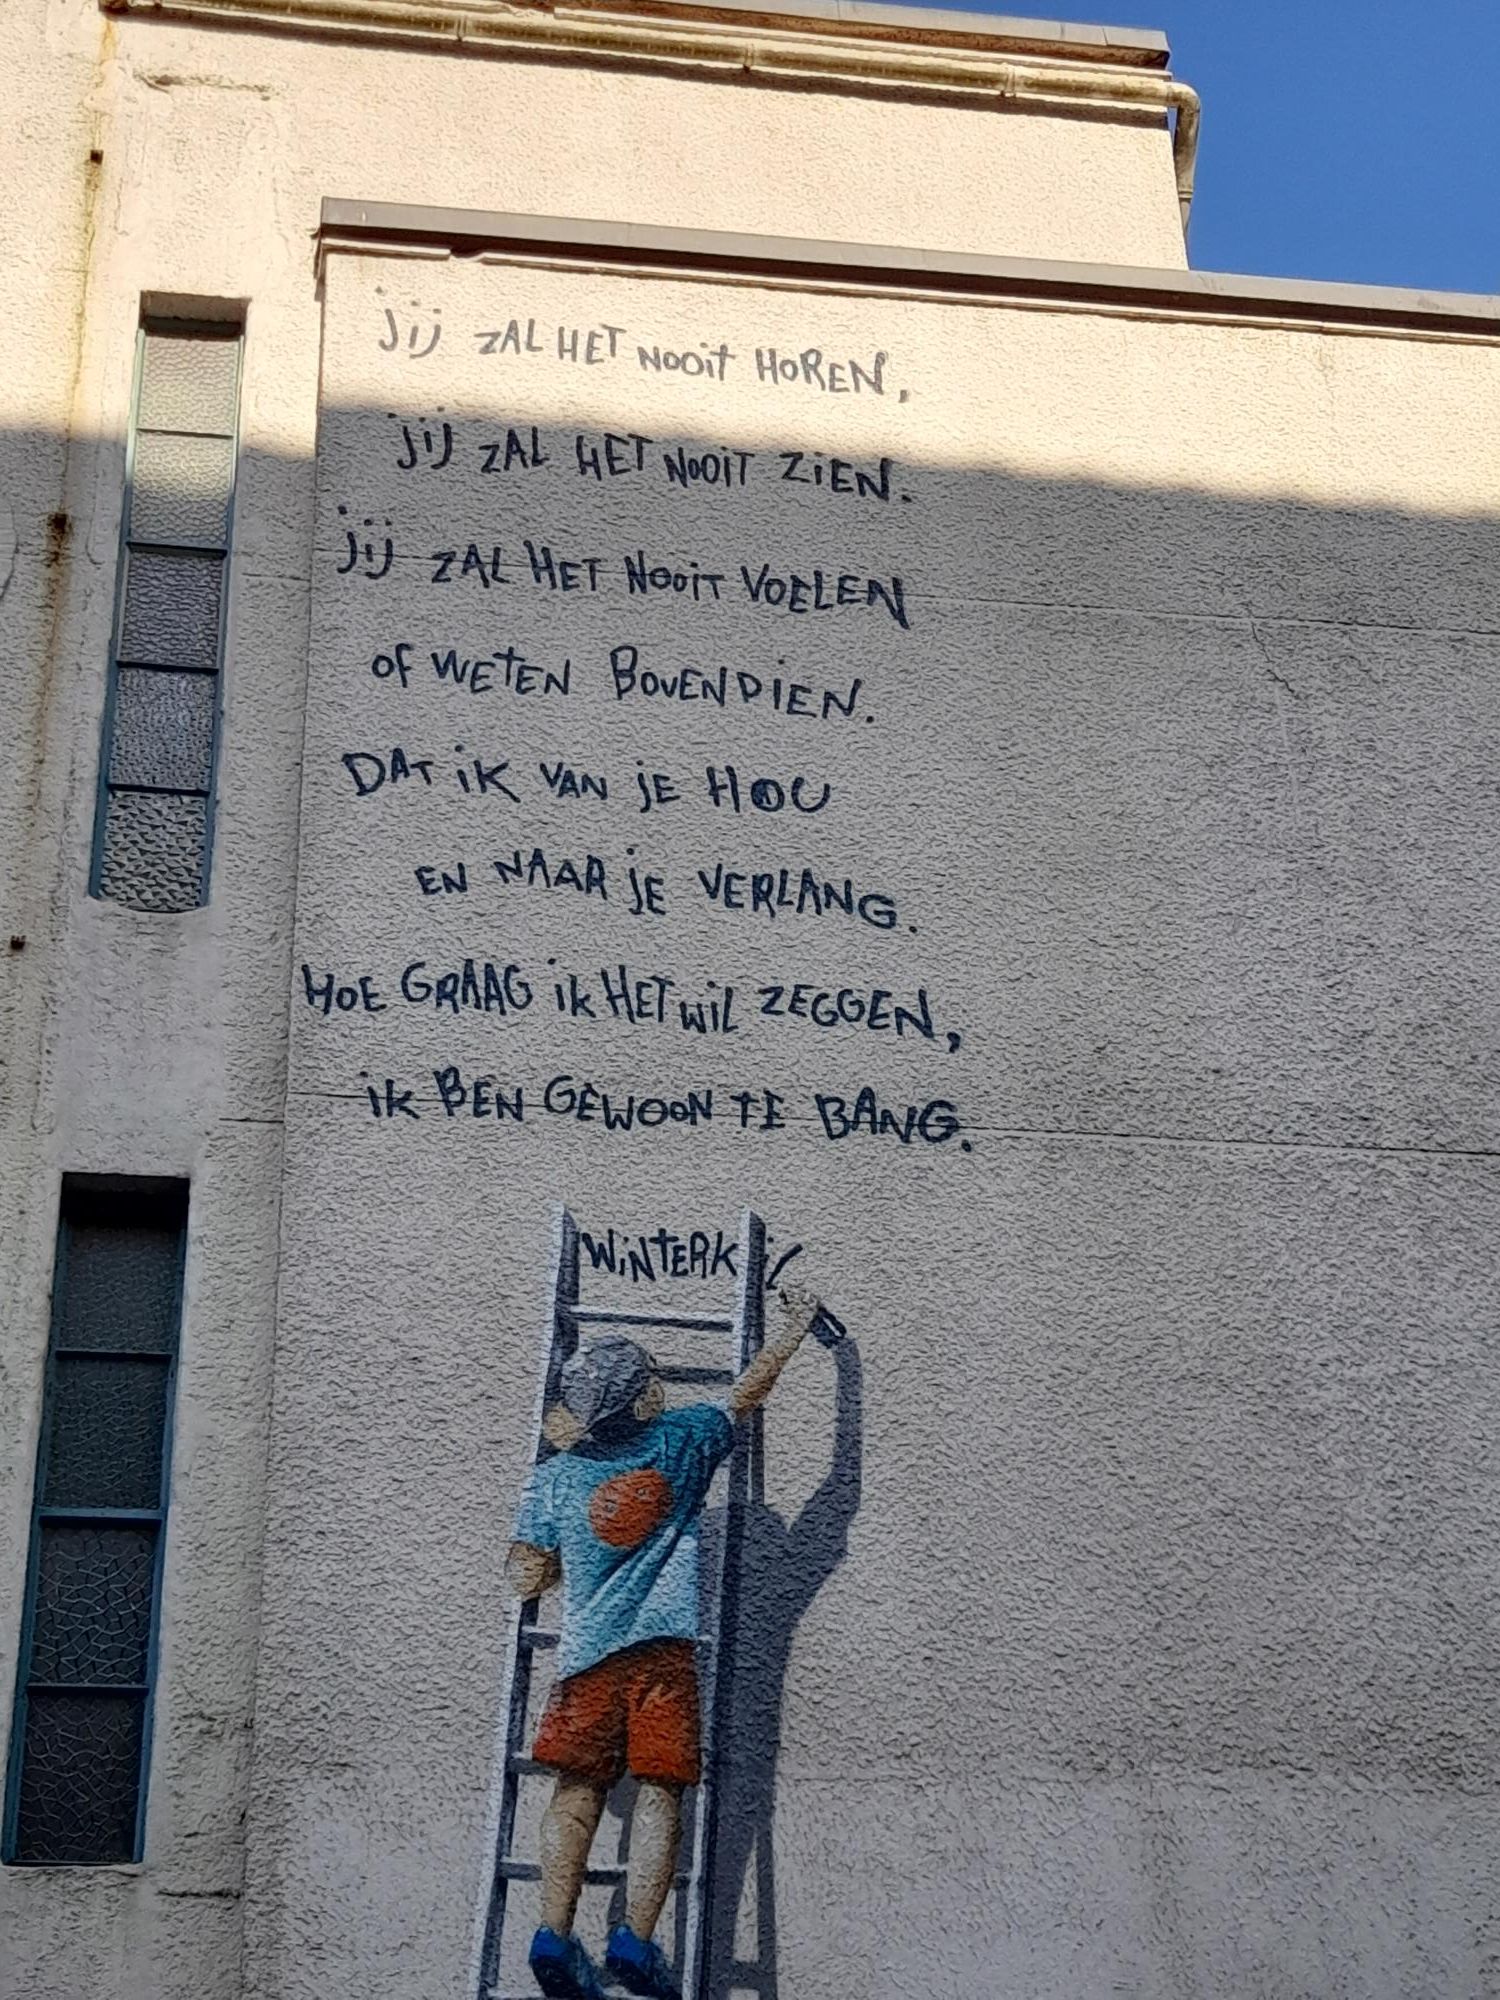 jij ZAL HET NOOiT HOREN,
jij ZAL HET NOOiT ZiEN.
jij ZAL HET NOOiT VOELEN
OF WETEN BOVENDiEN.
DAT iK VAN jE HOU
EN NAAR jE VERLANG.
HOE GRAAG ik HET WiL ZEGGEN,
ik BEN GEWOON TE BANG.
WiNTERK i